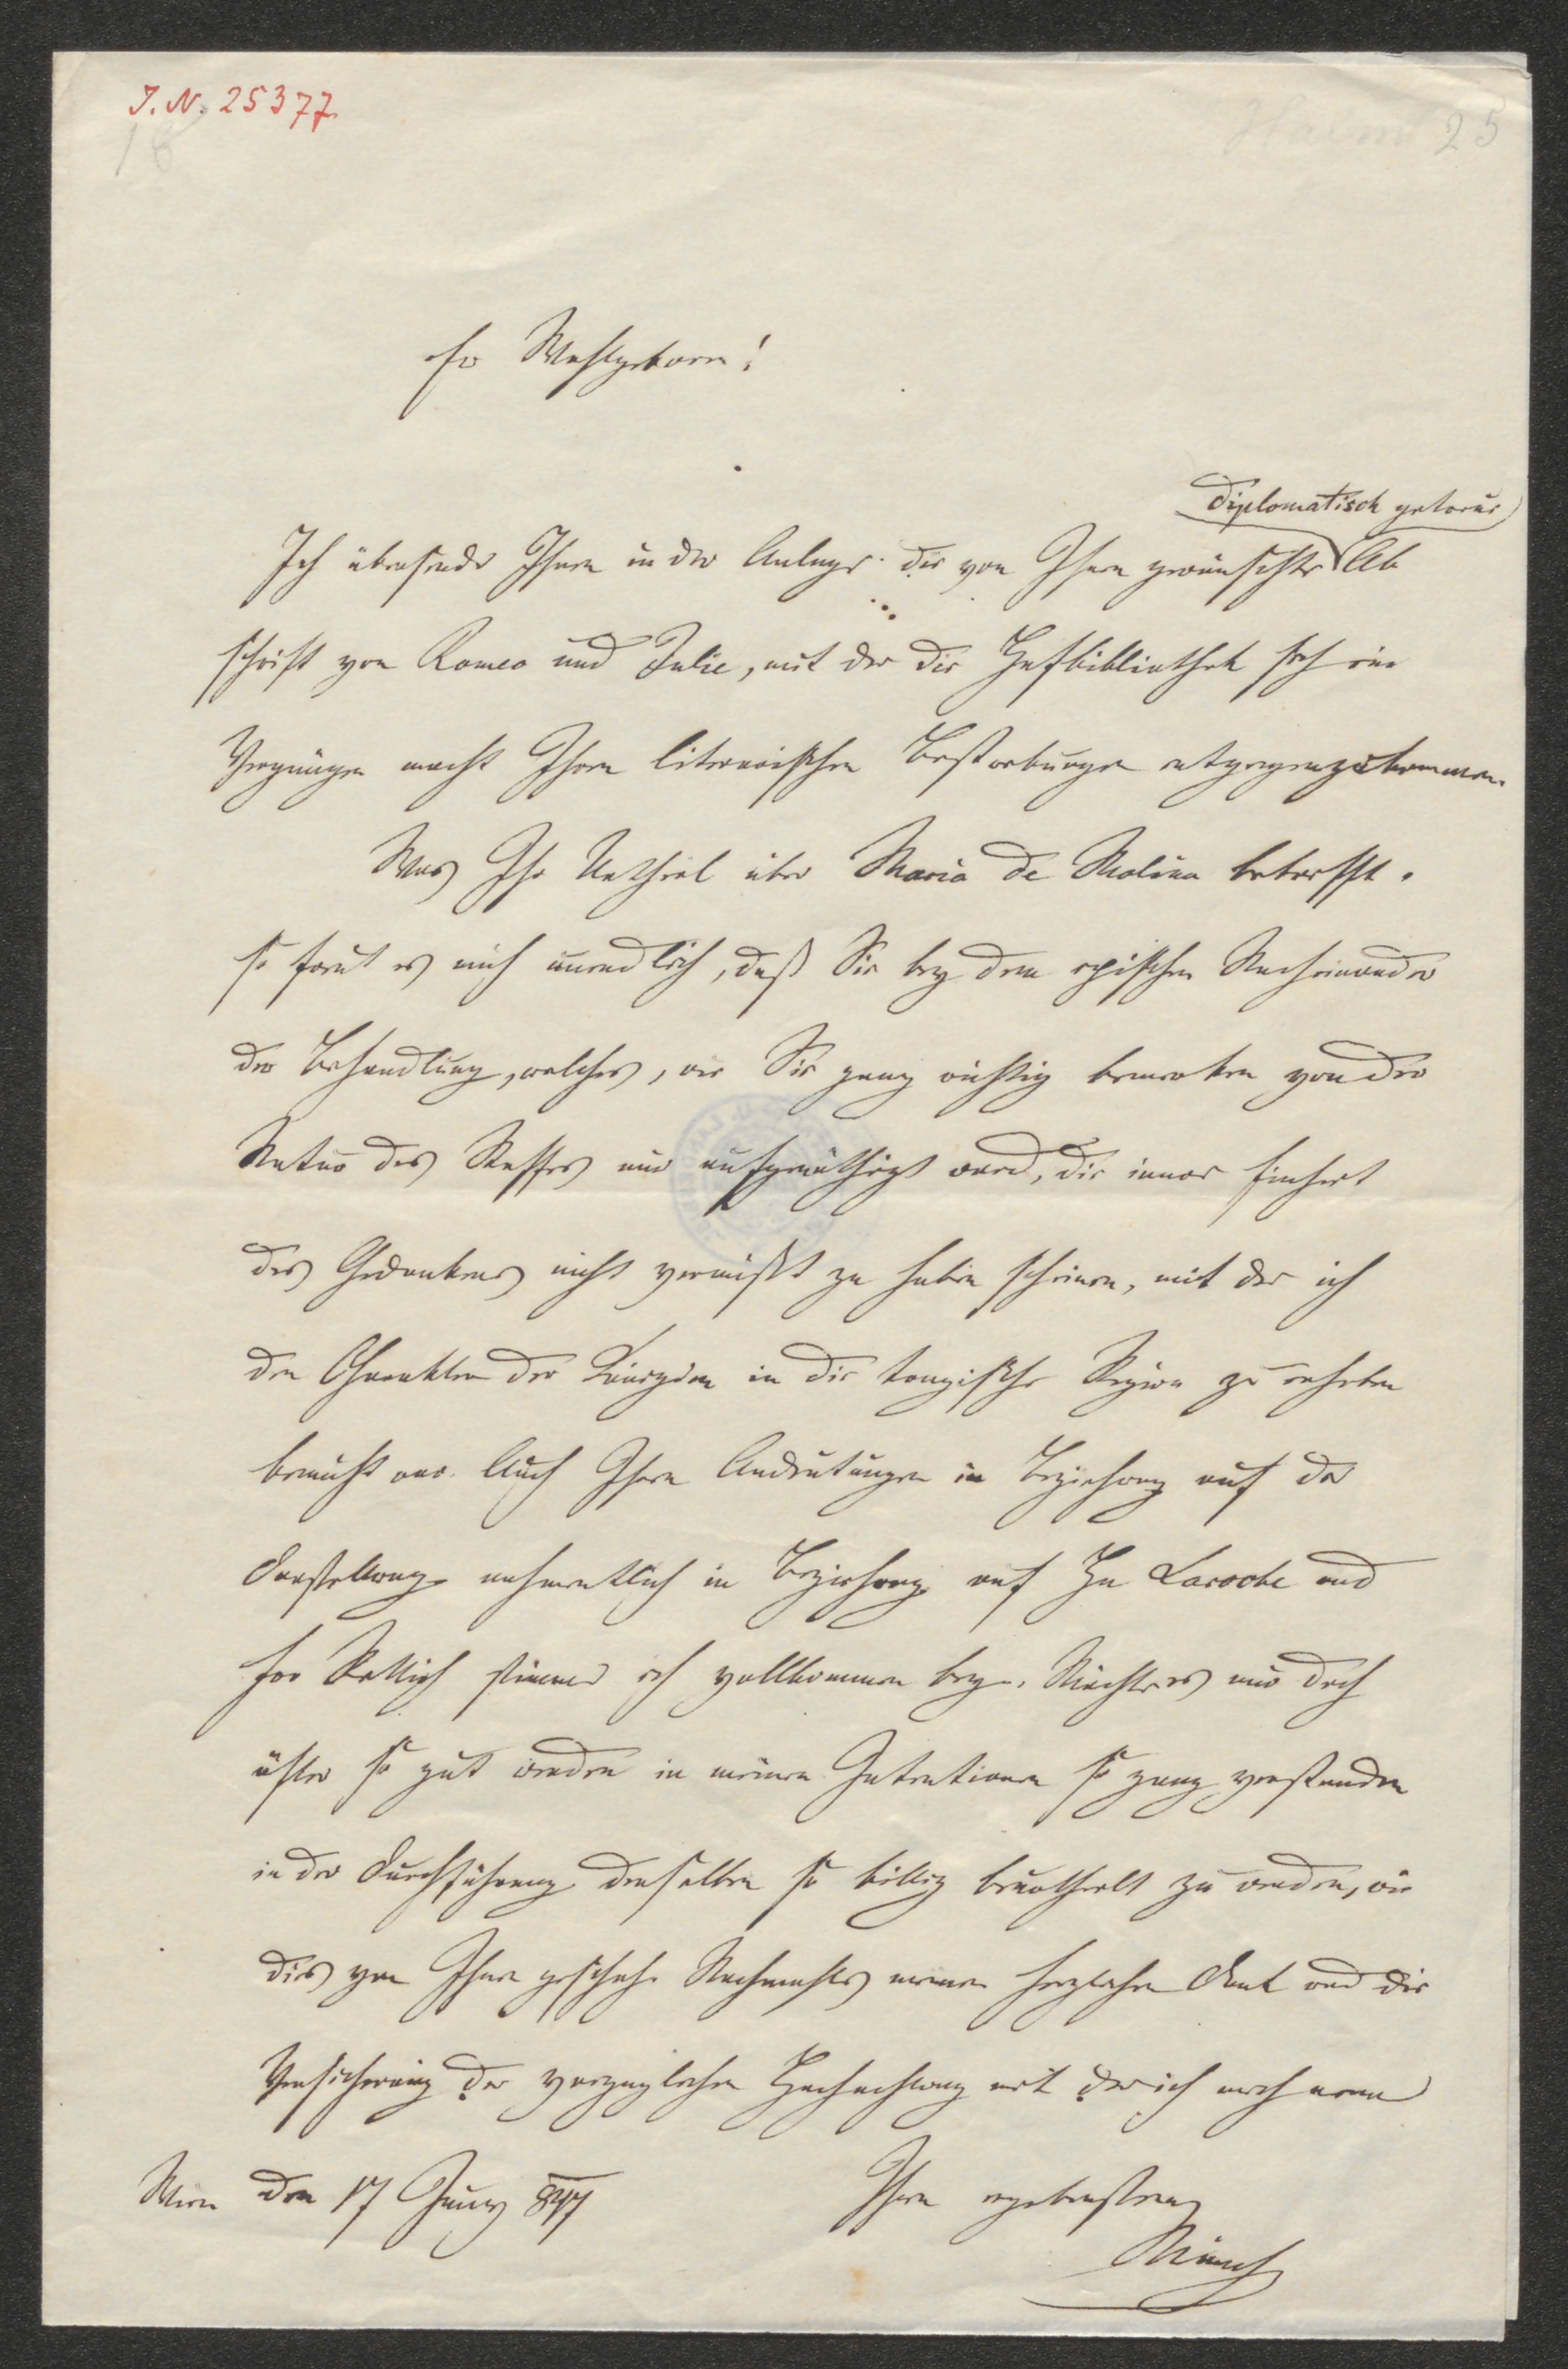 J. N. 25377
18
Halm 25
Ew Wohlgeborn!
diplomatisch getreue
Ich übersende Ihnen in der Anlage die von Ihnen gewünschte Ab
schrift von Romeo und Julie, mit der die Hofbibliothek sich ein
Vergnügen macht Ihren literarischen Bestrebungen entgegenzukommen.
Was Ihr Urtheil über Maria de Molina betrifft.
so freut es mich unendlich, daß Sie bey dem epischen Nacheinander
der Behandlung, welches, wie Sie ganz richtig bemerken von der
Natur des Stoffes mir aufgenöthigt ward, die innere Einheit
des Gedankens nicht vermißt zu haben scheinen, mit der ich
den Charakter der Königin in die tragische Region zu erheben
bemüht war. Auch Ihren Andeutungen in Beziehung auf die
Darstellung nahmentlich in Beziehung auf Hn Laroche und
Fr Rettich stimme ich vollkommen bey. Möchte es mir doch
öfter so gut werden in meinen Intentionen so ganz verstanden
in der Durchführung derselben so billig beurtheilt zu werden, wie
dies von Ihnen geschah. Nochmahls meinen herzlichen Dank und die
Versicherung der vorzüglichen Hochachtung mit der ich mich nenne
Wien den 17 Juny 847
Ihren ergebensten
Münch